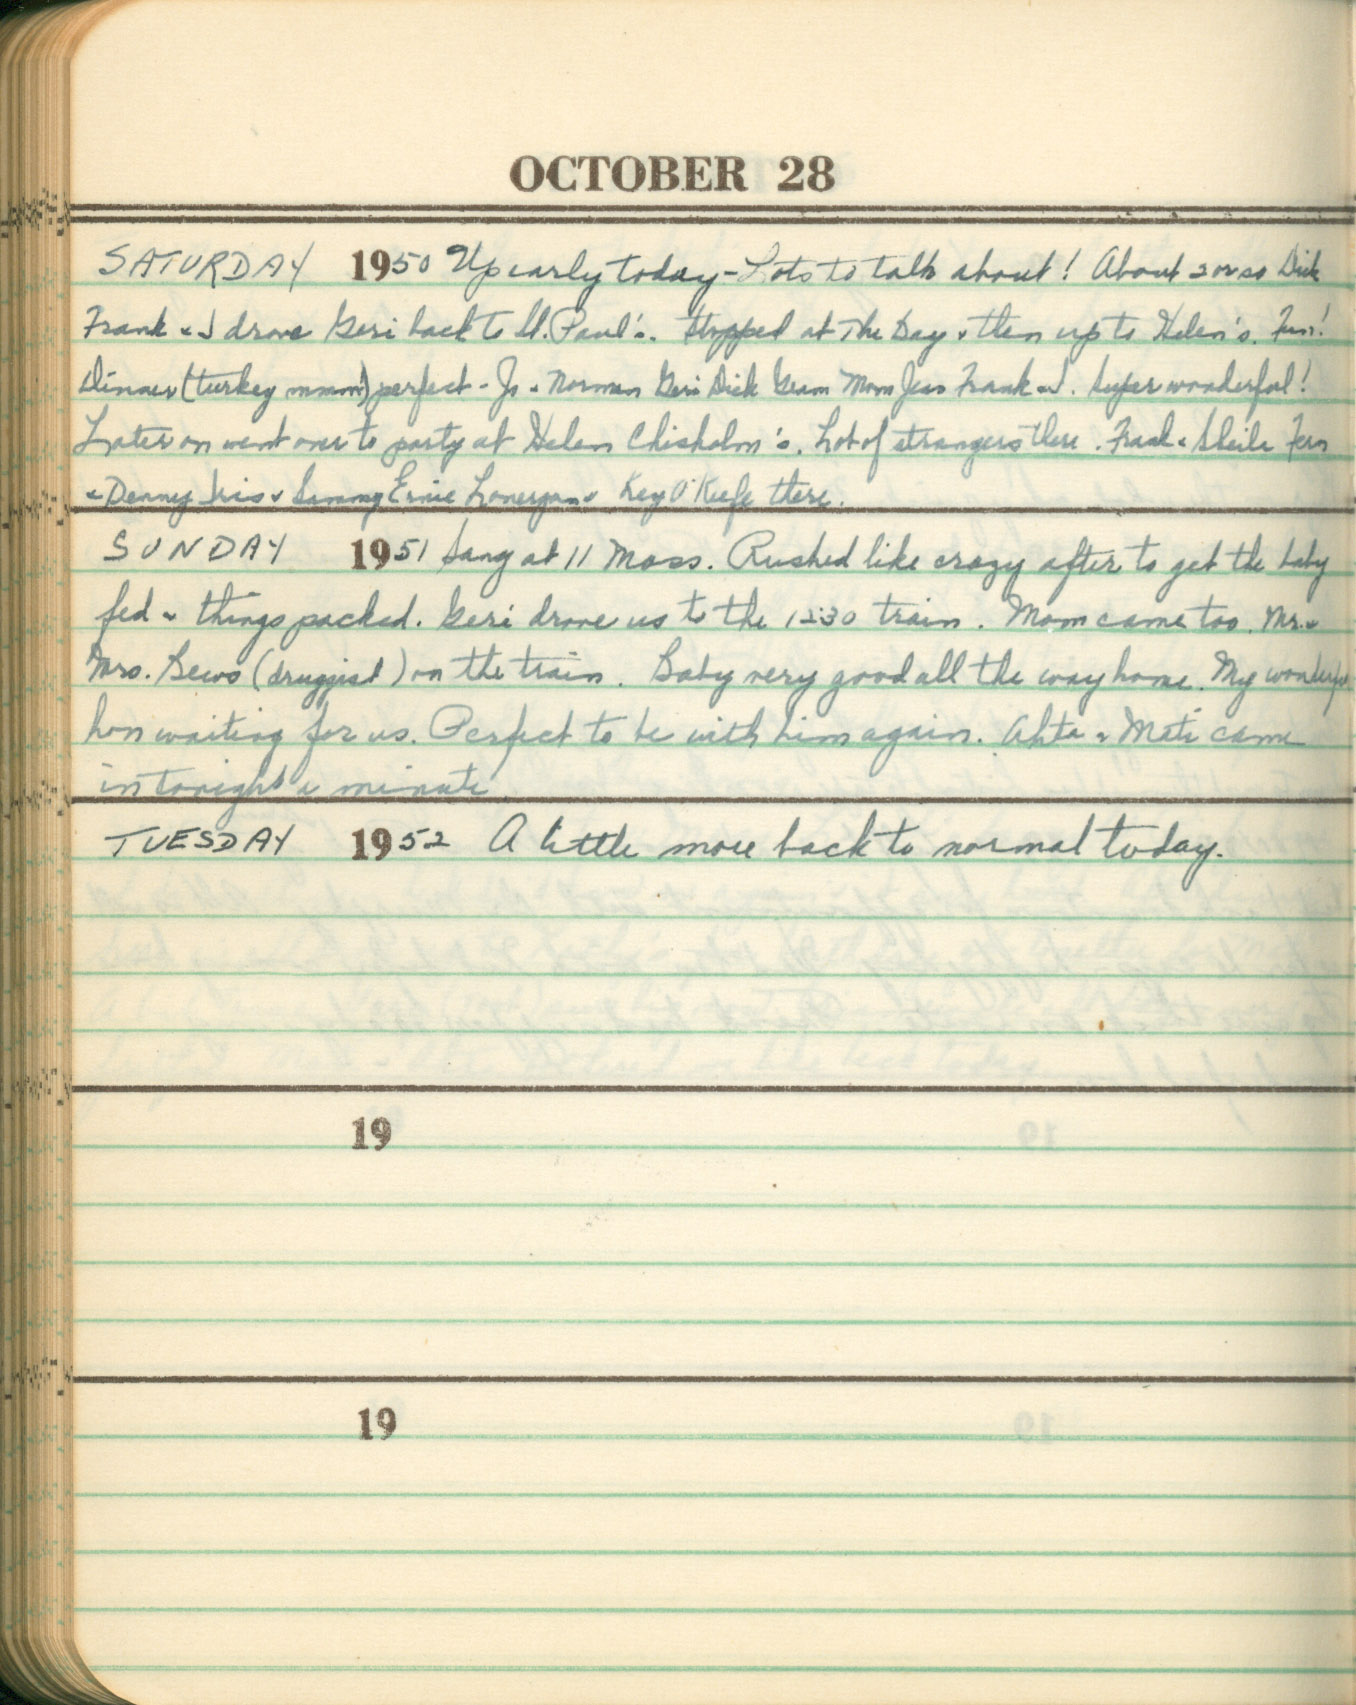 OCTOBER 28
SATURDAY 1950 Up early today - Lots to talk about! About 2 or so Dick
Frank & I drove Geri back to St. Paul's. Stopped at The Bay & then up to Helen's. Fun!
Dinner (turkey mmm) perfect - Jo & Norman Geri Dick Gram Mom Jess Frank & I. Super wonderful!
Later on went over to party at Helen Chisholm's. Lot of strangers there. Frank & Sheila Fern
& Denny Iris & Sammy Ernie Lonergan & Kay O'Keefe there.
SUNDAY 1951 Sang at 11 Mass. Rushed like crazy after to get the baby
fed & things packed. Geri drove us to the 12:30 train. Mom came too. Mr. &
Mrs. Bews (druggist) on the train. Baby very good all the way home. My wonderful
hon waiting for us. Perfect to be with him again. & came
in tonight a minute
TUESDAY 1952 A little more back to normal today.
19
19